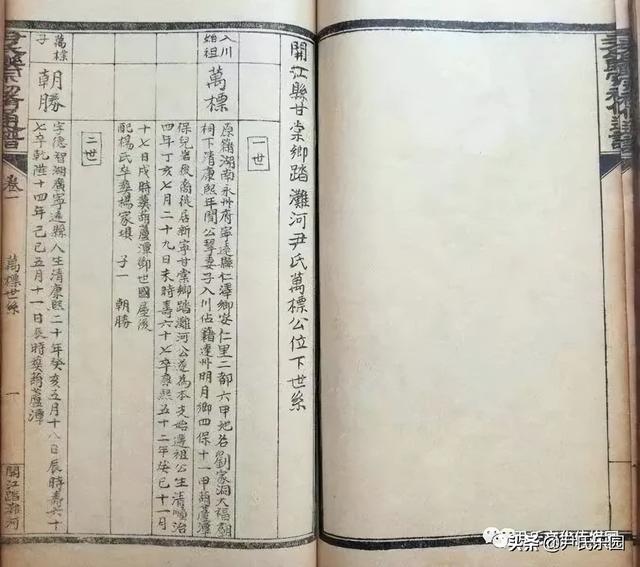 開江縣甘棠鄉踏灘河尹氏萬標公位下世系
一世
入川始祖
萬標
原籍湖南永州府寧遠縣仁澤鄉安仁里二都六甲地名劉家洞大福廟
祠下清康熙年間公挈妻子入川佔籍達州明月鄉四保十一甲葫蘆潭
保兒岩後裔徙居新寧甘棠鄉踏灘河公是為本支始遷祖公生清順治
四年丁亥七月二十九日未時壽六十七卒康熙五十二年癸巳十一月
十七日戌時葬葫蘆潭鄧世國屋後
配楊氏卒葬楊家垻 子一 朝勝
二世
萬標子
朝勝
字德智湖廣寧遠縣人生清康熙二十年癸亥五月十八日辰時壽六十
七卒乾隆十四年己巳五月十一日辰時葬葫蘆潭
卷一
萬標世系
一
開江踏灘河
头条 @尹氏乐园